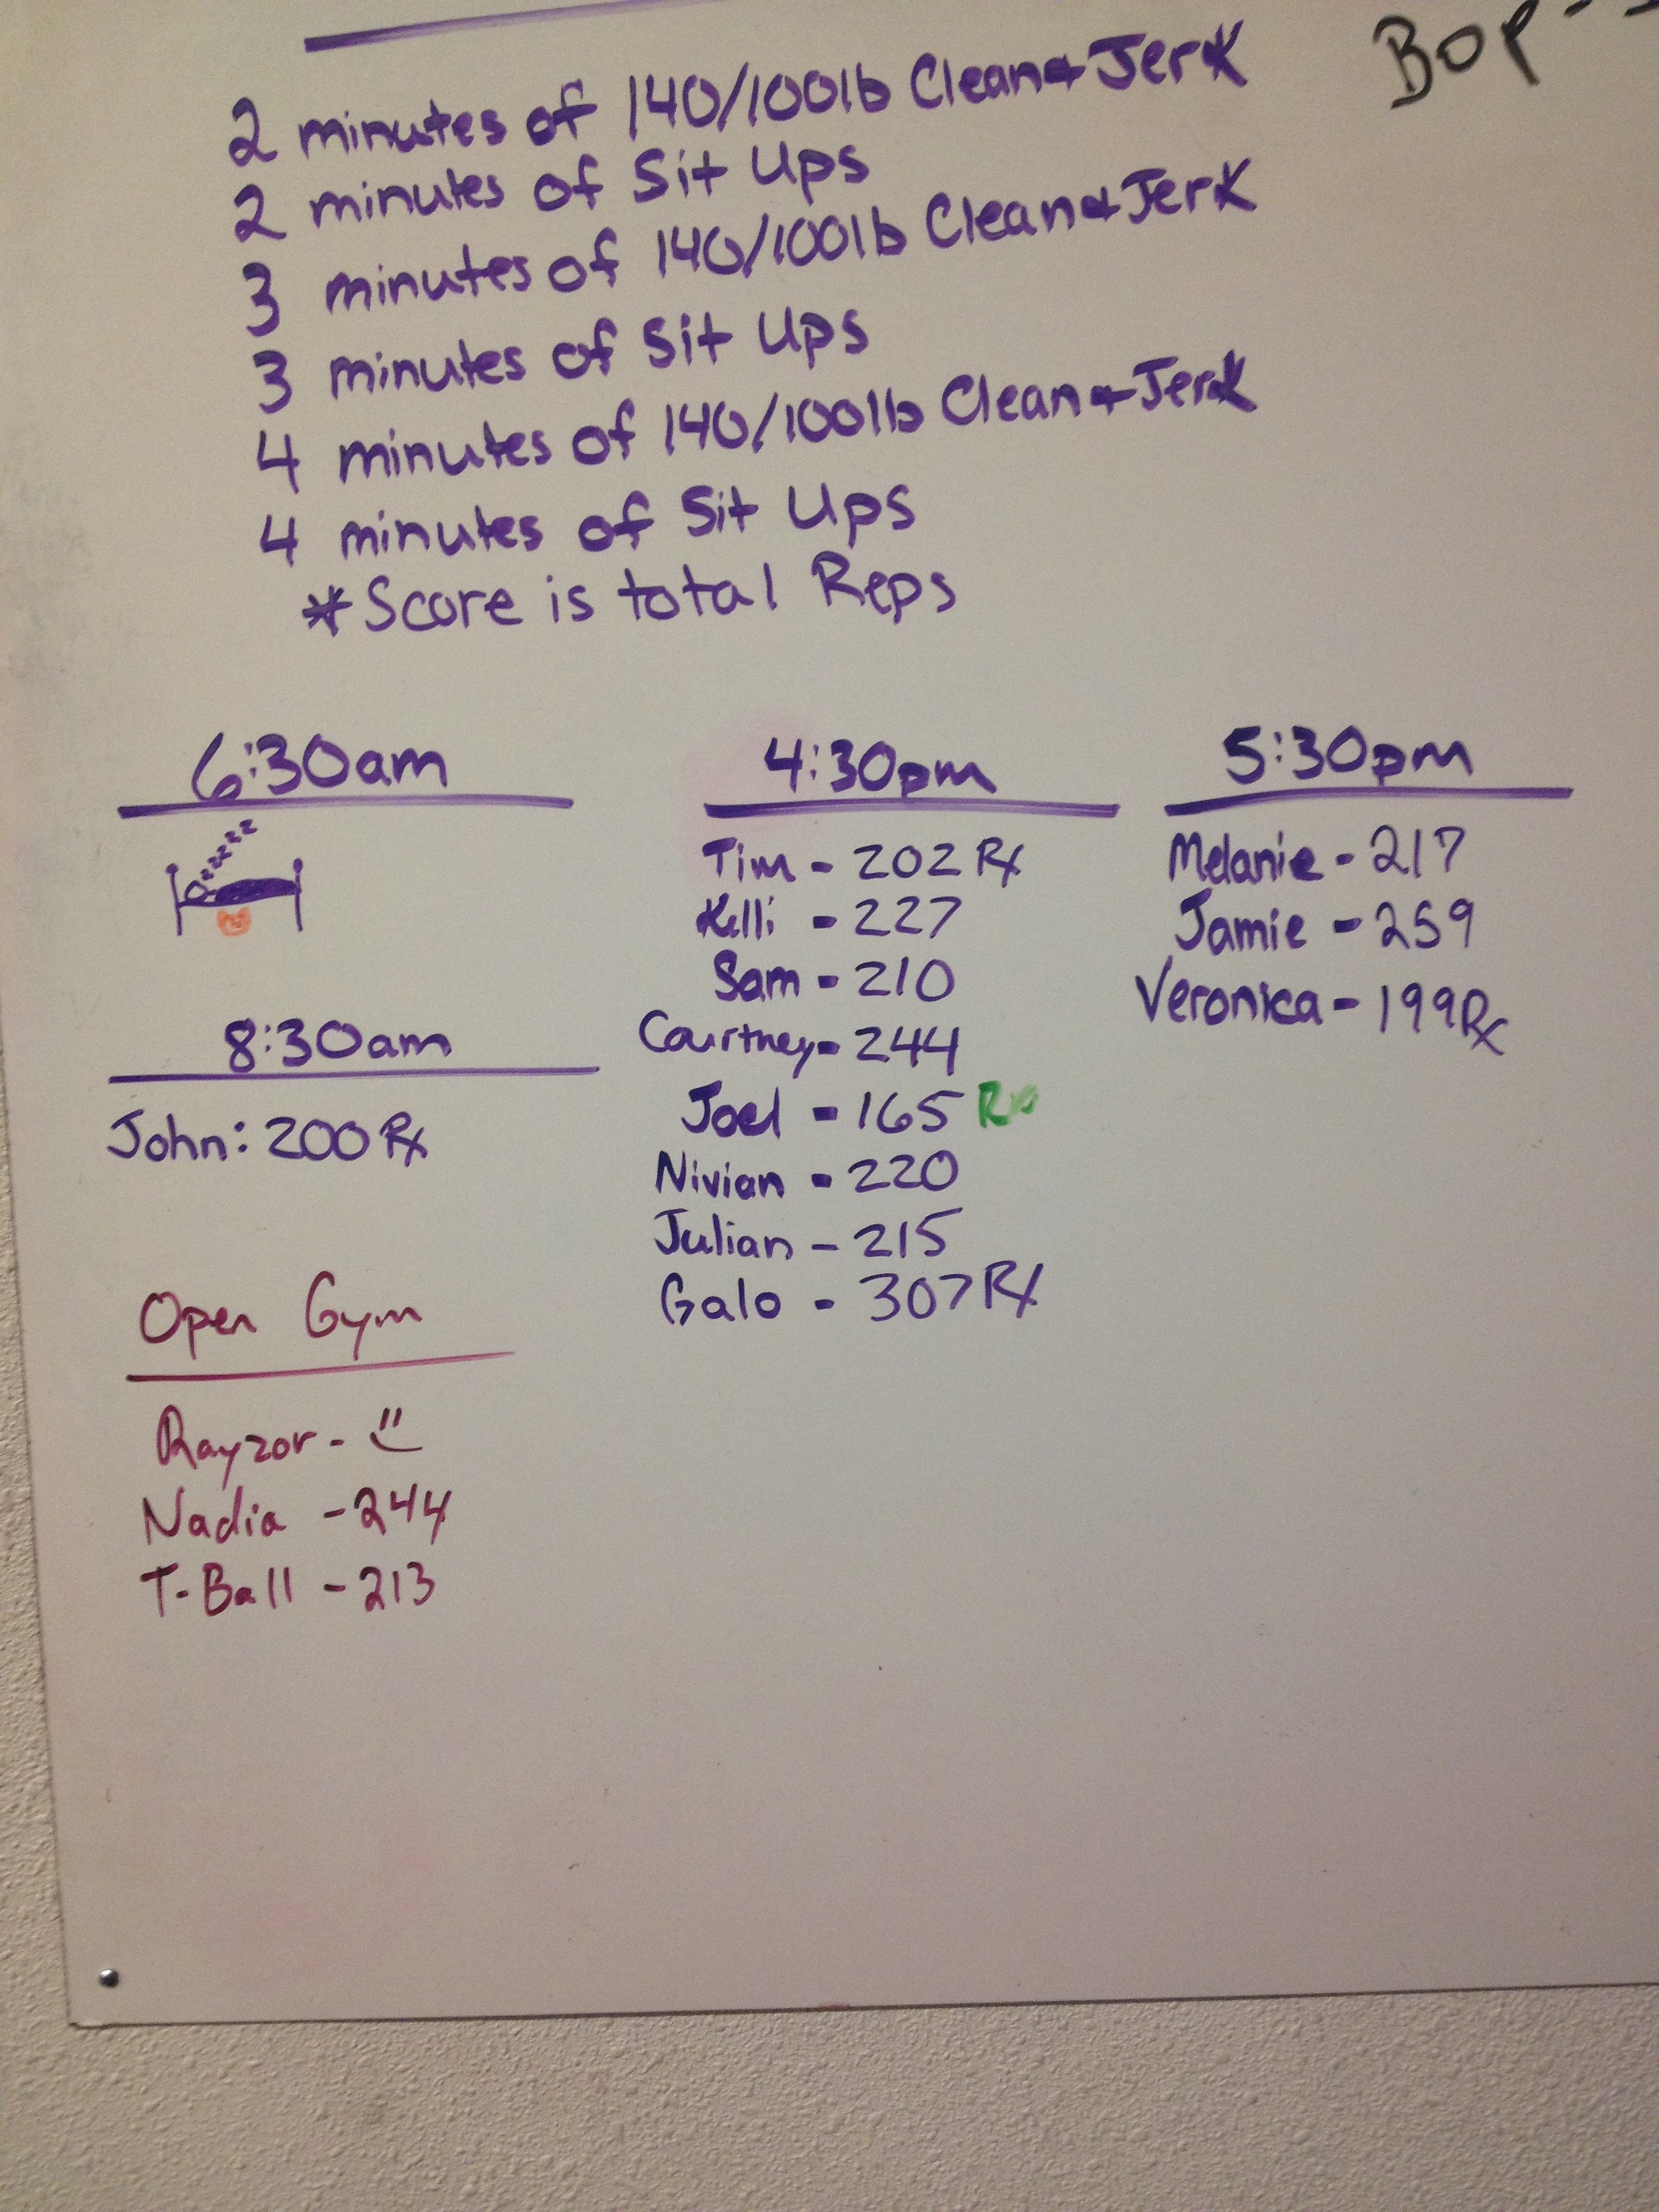 Bop
2 minutes of 140/100lb Clean & Jerk
2 minutes of Sit Ups
3 minutes of 140/100lb Clean & Jerk
3 minutes of Sit Ups
4 minutes of 140/100lb Clean & Jerk
4 minutes of Sit Ups
*Score is total Reps
6:30am
zzzzz
8:30am
John: 200 Rx
Open Gym
Rayzor -
Nadia - 244
T-Ball - 213
4:30pm
Tim - 202 Rx
Kelli - 227
Sam - 210
Courtney - 244
Joel - 165 Rx
Nivian - 220
Julian - 215
Galo - 307 Rx
5:30pm
Melanie - 217
Jamie - 259
Veronica - 199 Rx